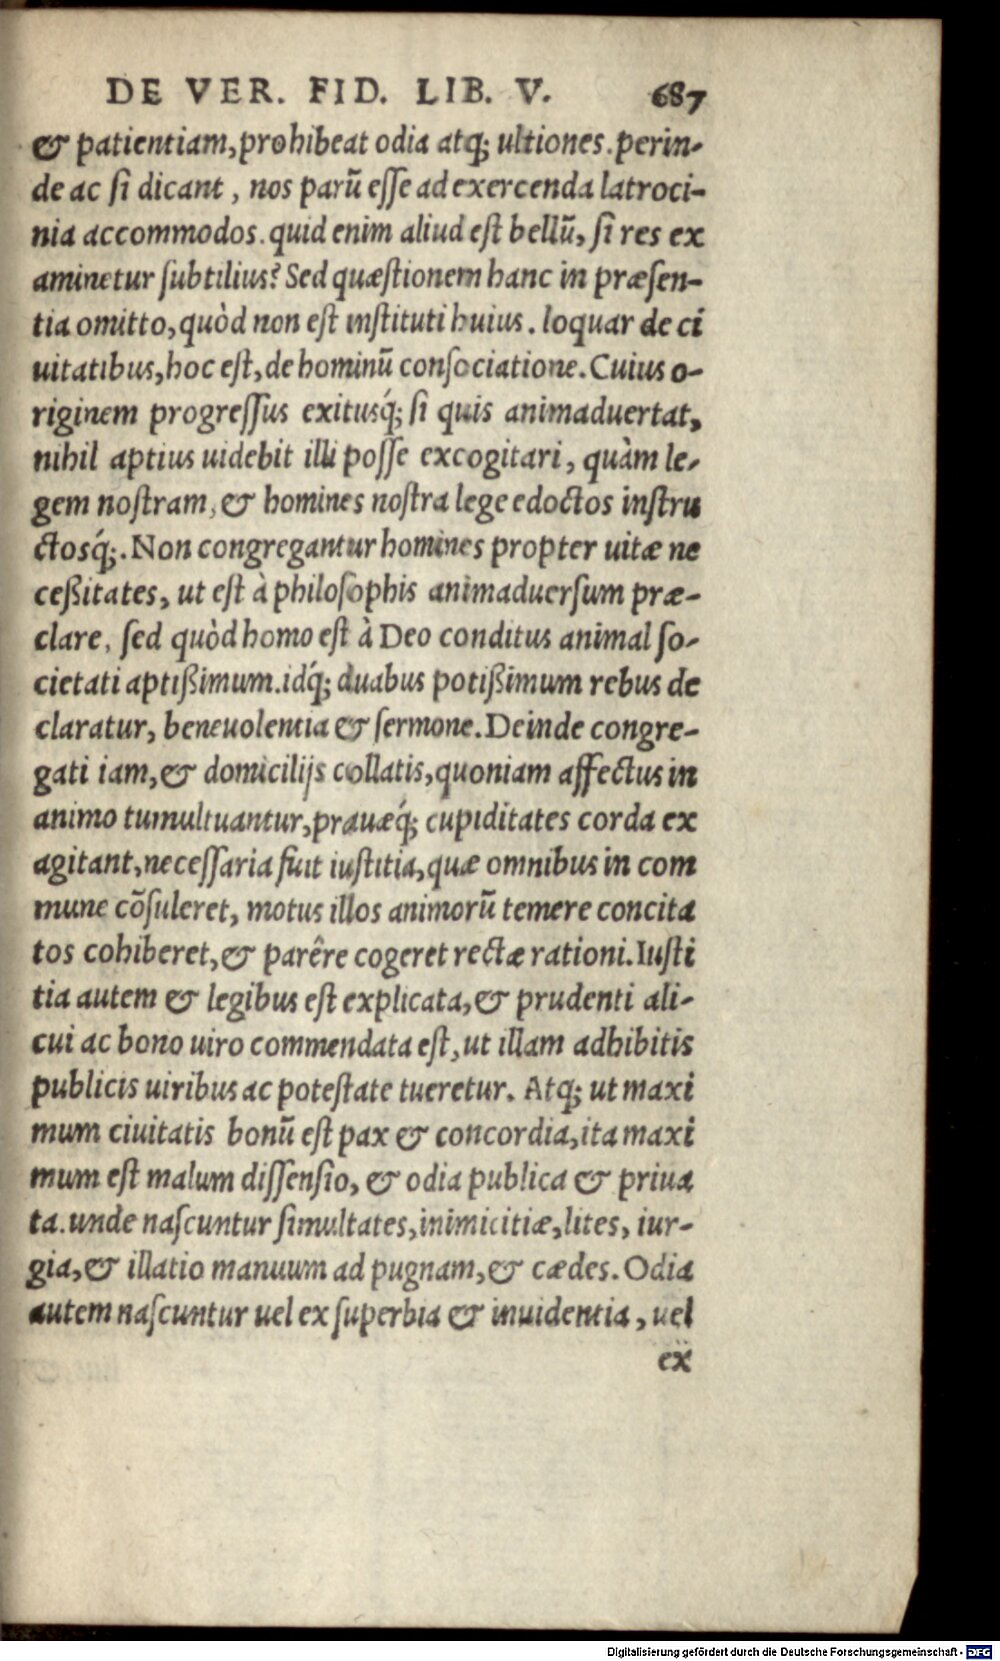 DE VER. FID. LIB. V. 687
& patientiam, prohibeat odia atq; ultiones. perin-
de ac si dicant, nos parū esse ad exercenda latroci-
nia accommodos. quid enim aliud est bellū, si res ex
aminetur subtilius? Sed quæstionem hanc in præsen-
tia omitto, quòd non est instituti huius. loquar de ci
uitatibus, hoc est, de hominū consociatione. Cuius o-
riginem progressus exitusq́; si quis animaduertat,
nihil aptius uidebit illi posse excogitari, quàm le-
gem nostram, & homines nostra lege edoctos instru
ctosq́;. Non congregantur homines propter uitæ ne
ceßitates, ut est à philosophis animaduersum præ-
clare, sed quòd homo est à Deo conditus animal so-
cietati aptißimum. idq́; duabus potißimum rebus de
claratur, beneuolentia & sermone. Deinde congre-
gati iam, & domicilijs collatis, quoniam affectus in
animo tumultuantur, prauæq́; cupiditates corda ex
agitant, necessaria fuit iustitia, quæ omnibus in com
mune cōsuleret, motus illos animorū temere concita
tos cohiberet, & parêre cogeret rectæ rationi. Iusti
tia autem & legibus est explicata, & prudenti ali-
cui ac bono uiro commendata est, ut illam adhibitis
publicis uiribus ac potestate tueretur. Atq; ut maxi
mum ciuitatis bonū est pax & concordia, ita maxi
mum est malum dissensio, & odia publica & priua
ta. unde nascuntur simultates, inimicitiæ, lites, iur-
gia, & illatio manuum ad pugnam, & cædes. Odia
autem nascuntur uel ex superbia & inuidentia, uel
ex
Digitalisierung gefördert durch die Deutsche Forschungsgemeinschaft - DFG